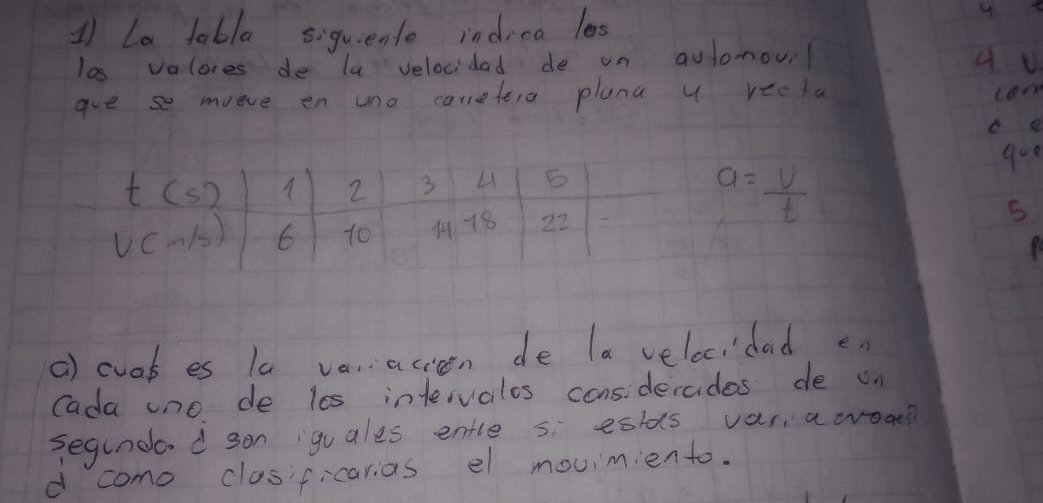 1) La tabla siguiente indica los
los valores de la velocidad de un automovil
que se mueve en una carretera plana y recta
t (s) 1 2 3 4 5
V(m/s) 6 10 14 18 22
a = v
t
a) cual es la variacion de la velocidad en
cada uno de los intervalos considerados de un
segundo. ¿ son iguales entre si estas variaciones?
¿ como clasificarias el movimiento.
4
4 U
com
c e
que
5